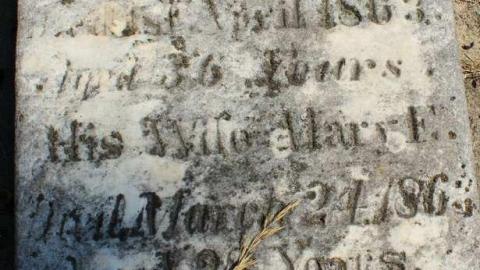 1st April 1863.
Aged 36 Years
His Wife Mary E.
March 24, 1863
Years